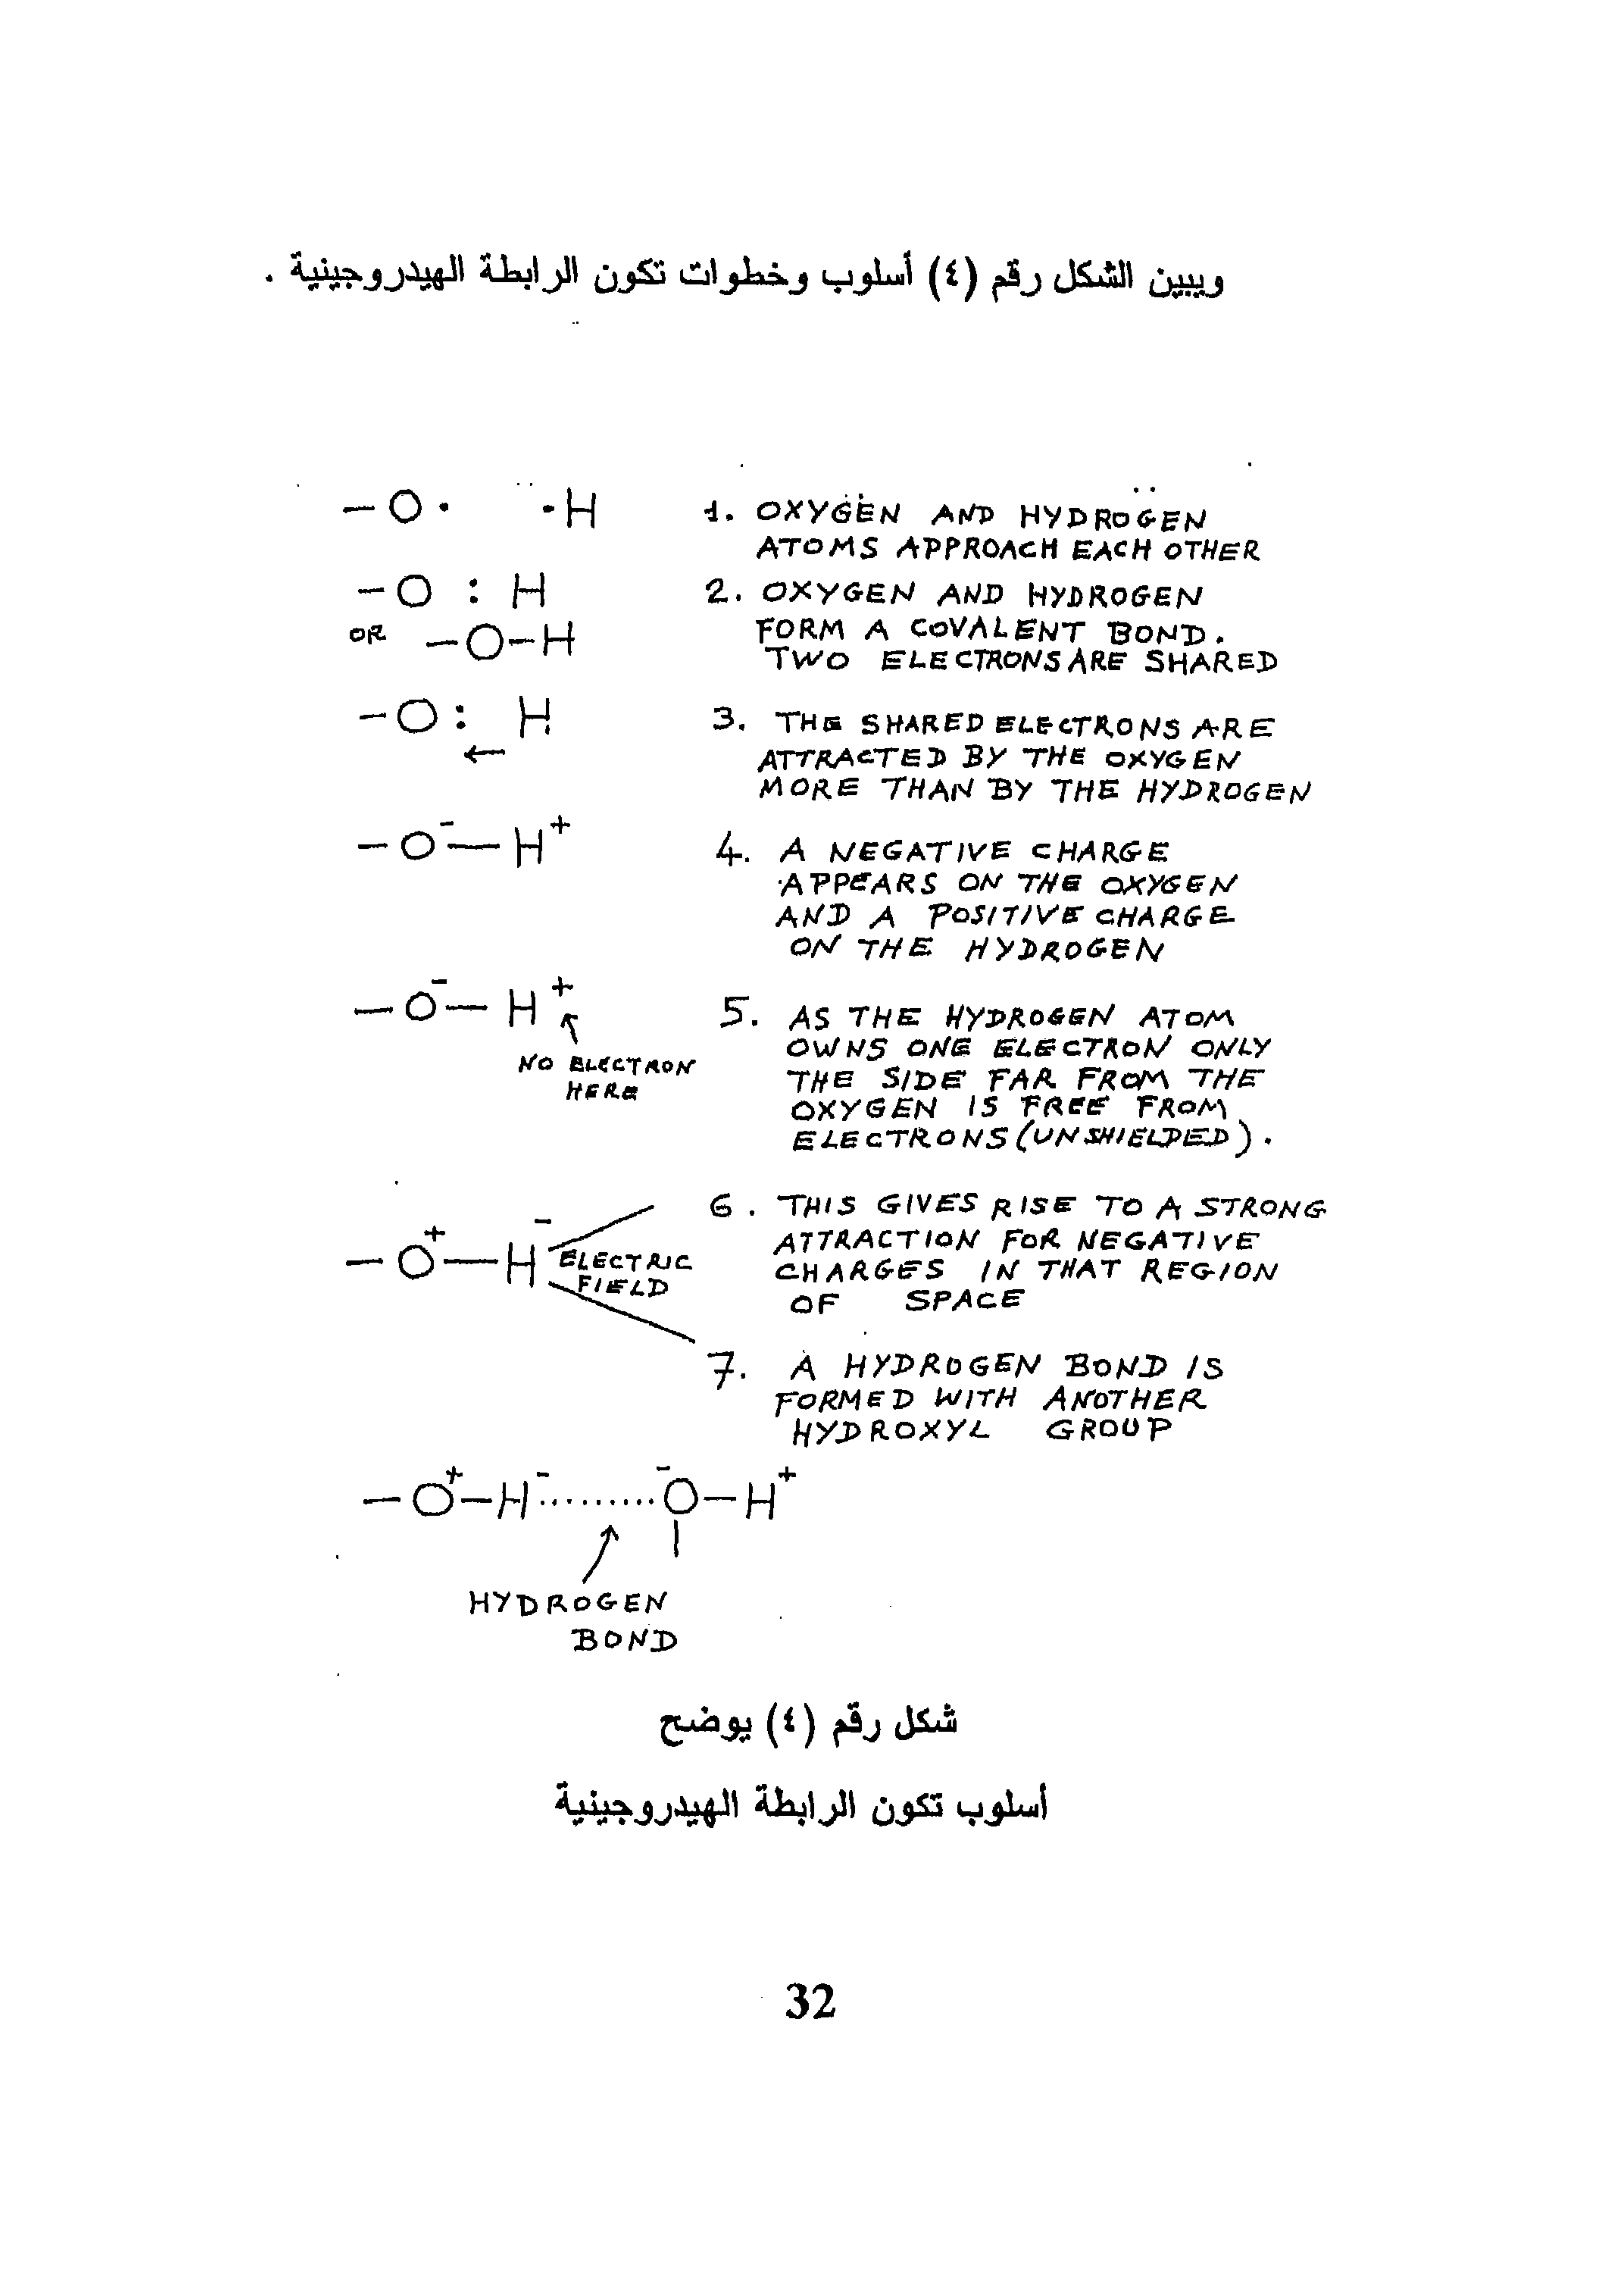 ويبين الشكل رقم (٤) أسلوب وخطوات تكون الرابطة الهيدروجينية .
– O · · H
1. OXYGEN AND HYDROGEN
ATOMS APPROACH EACH OTHER
– O : H
2. OXYGEN AND HYDROGEN
OR – O – H
FORM A COVALENT BOND.
TWO ELECTRONS ARE SHARED
– O : H
←
3. THE SHARED ELECTRONS ARE
ATTRACTED BY THE OXYGEN
MORE THAN BY THE HYDROGEN
– O⁻ — H⁺
4. A NEGATIVE CHARGE
APPEARS ON THE OXYGEN
AND A POSITIVE CHARGE
ON THE HYDROGEN
– O⁻ — H⁺
NO ELECTRON
HERE
5. AS THE HYDROGEN ATOM
OWNS ONE ELECTRON ONLY
THE SIDE FAR FROM THE
OXYGEN IS FREE FROM
ELECTRONS (UNSHIELDED).
– O⁺ — H⁻
ELECTRIC
FIELD
6. THIS GIVES RISE TO A STRONG
ATTRACTION FOR NEGATIVE
CHARGES IN THAT REGION
OF SPACE
7. A HYDROGEN BOND IS
FORMED WITH ANOTHER
HYDROXYL GROUP
– O⁺ – H⁻ ......... ⁻O – H⁺
HYDROGEN
BOND
شكل رقم (٤) يوضح
أسلوب تكون الرابطة الهيدروجينية
32